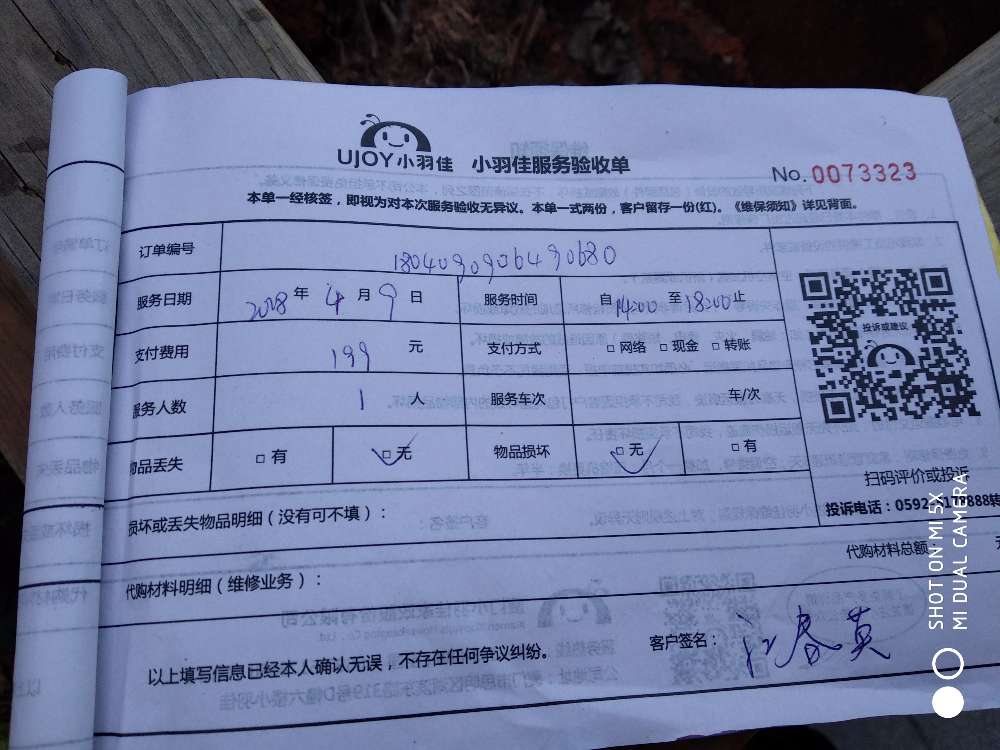 UJOY小羽佳 小羽佳服务验收单
No. 0073323
本单一经核签，即视为对本次服务验收无异议。本单一式两份，客户留存一份(红)。《维保须知》详见背面。
订单编号 1804090906490680
服务日期 2018年4月9日 服务时间 自14:00至18:00止
支付费用 199 元 支付方式 □网络 □现金 □转账
服务人数 1 人 服务车次 车/次
物品丢失 □有 □无 物品损坏 □无 □有
投诉或建议
扫码评价或投诉
投诉电话：0592-5178888转
损坏或丢失物品明细（没有可不填）：
代购材料总额：
代购材料明细（维修业务）：
以上填写信息已经本人确认无误，不存在任何争议纠纷。
客户签名：江春英
SHOT ON MI 5X
MI DUAL CAMERA